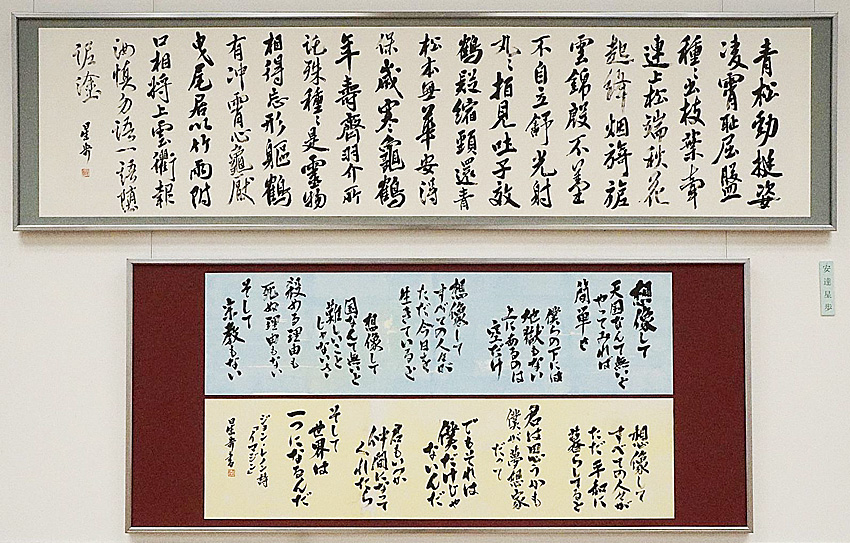 青松勁挺姿
凌霄恥屈盤
種々出枝葉牽
連上松端秋花
起絳烟旖旎
雲錦殷不羞
不自立舒光射
丸丸栢見吐子效
鶴疑縮頸還青
松本無華安得
保歳寒龜鶴
年壽齊羽介所
託殊種種是靈物
相得忘形軀鶴
有冲霄心龜厭
曳尾居以竹兩附
口相將上雲衢報
汝慎勿語一語墮
泥塗
星歩
安達星歩
想像して
天国なんて無いと
やってみれば
簡単さ
僕らの下には
地獄もない
上にあるのは
空だけ
想像して
すべての人々が
ただ今日を
生きていると
想像して
国なんて無いと
難しいこと
じゃないさ
殺める理由も
死ぬ理由もない
そして
宗教もない
想像して
すべての人々が
ただ平和に
暮らしてると
君は思うかも
僕が夢想家
だって
でもそれは
僕だけじゃ
ないんだ
君もいつか
仲間になって
くれたら
そして
世界は
一つになるんだ
ジョン・レノン詩
「イマジン」
星歩書